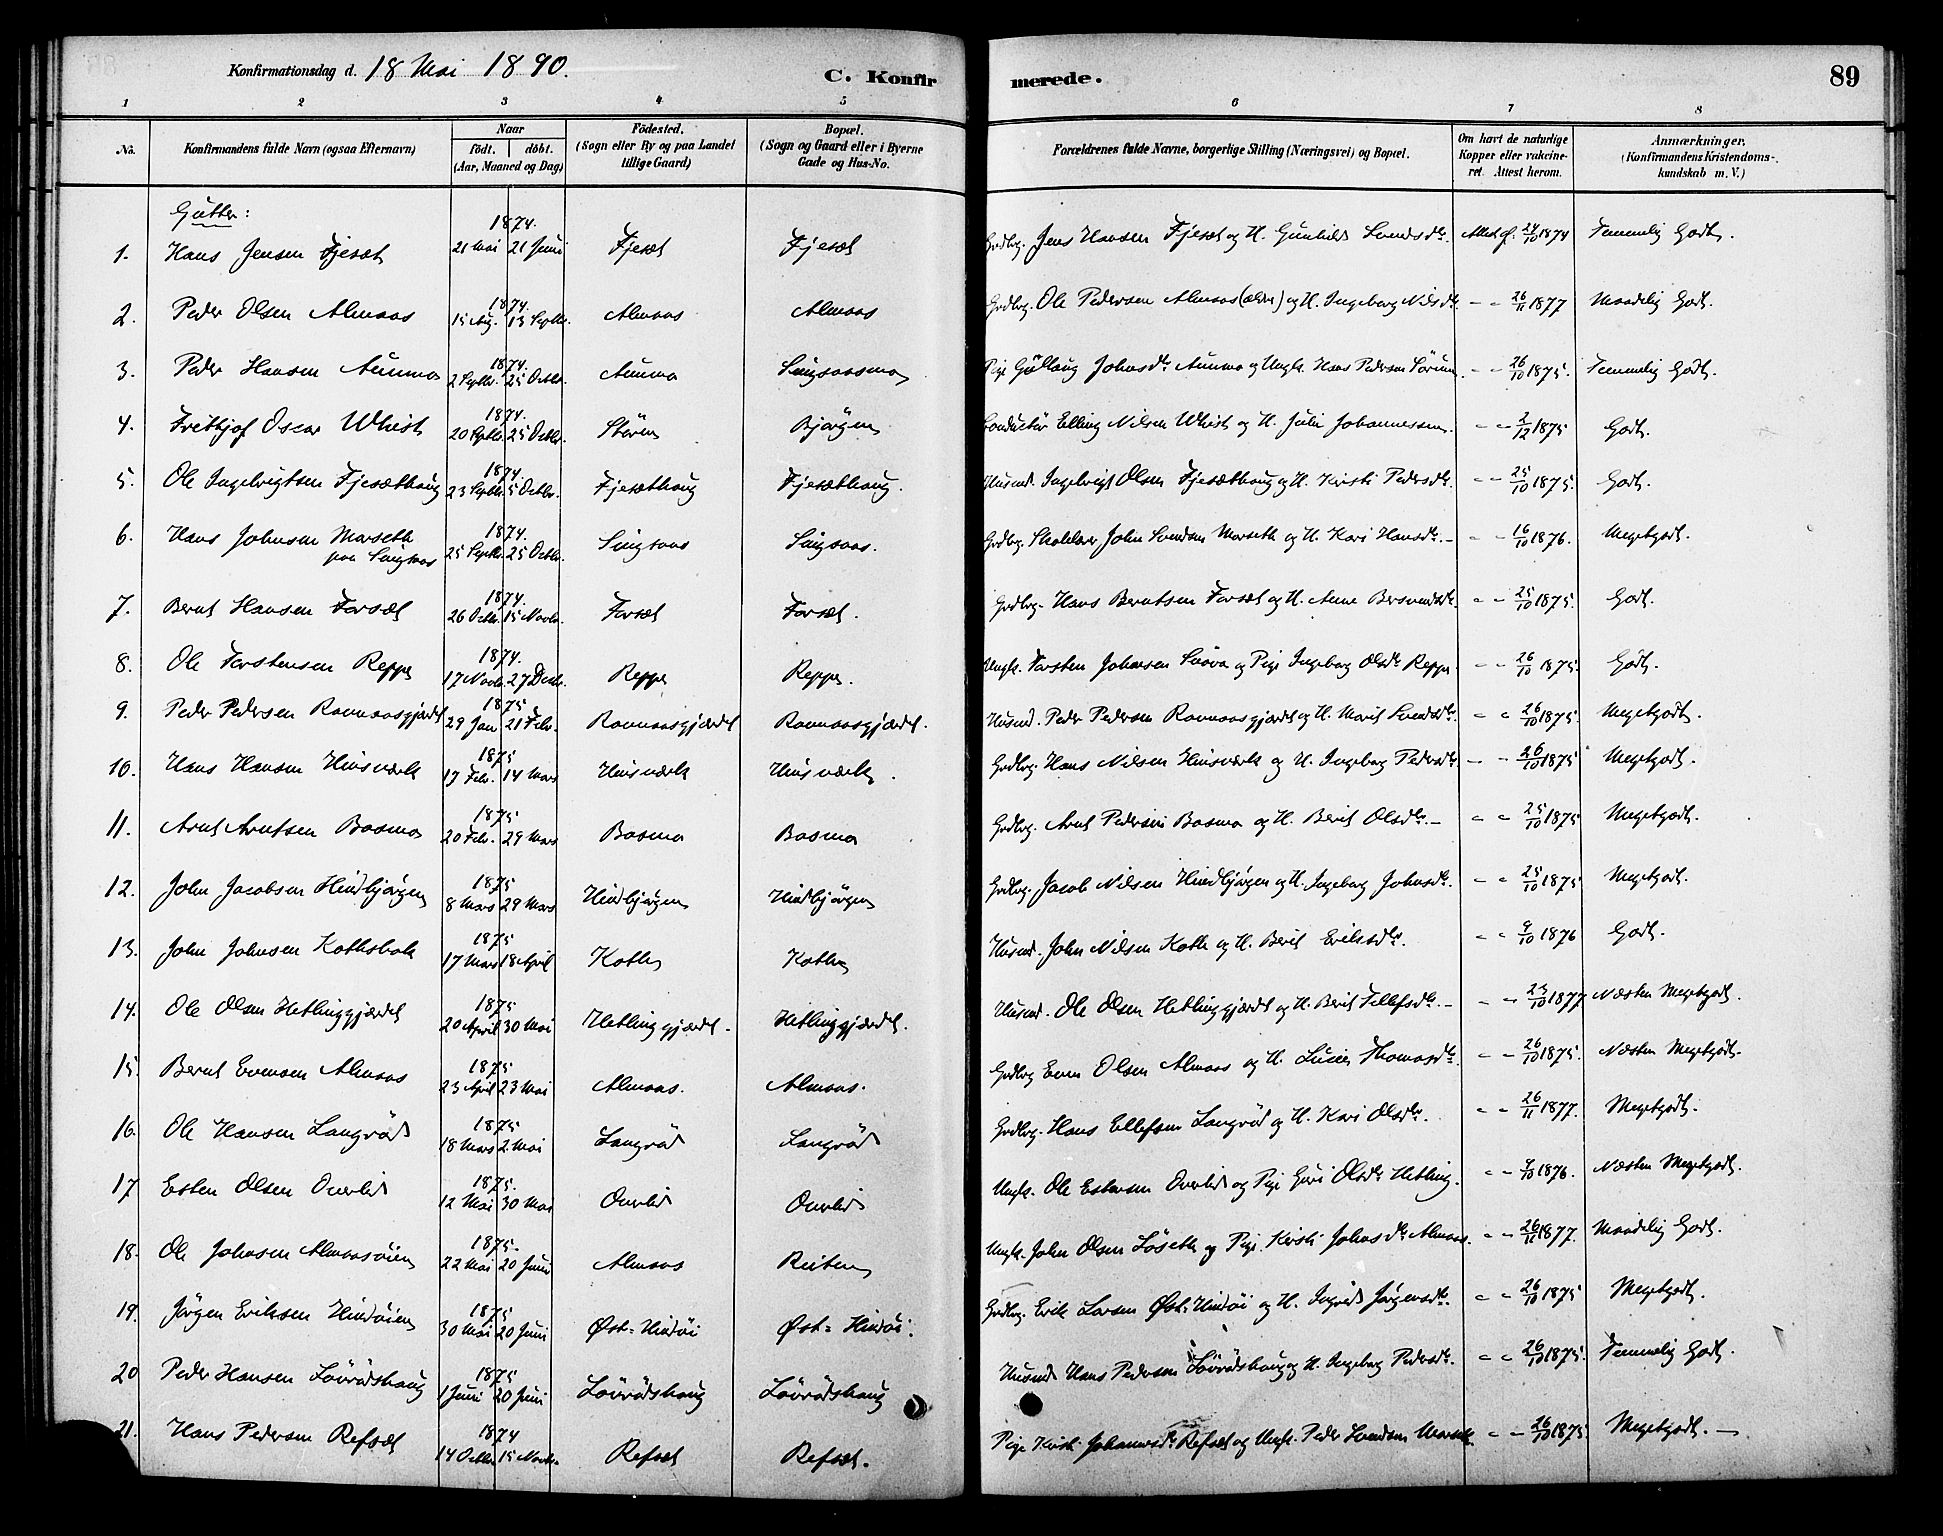 Konfirmationsdag d. 18 Mai 1890.
C. Konfirmerede.
89
1 2 3 4 5 6 7 8
No.
Konfirmandens fulde Navn (ogsaa Efternavn)
Naar
födt. döbt.
(Aar, Maaned og Dag)
Födested.
(Sogn eller By og paa Landet
tillige Gaard)
Bopæl.
(Sogn og Gaard eller i Byerne
Gade og Hus-No.
Forældrenes fulde Navne, borgerlige Stilling (Næringsvei) og Bopæl.
Om havt de naturlige
Kopper eller vakcine-
ret. Attest herom.
Anmærkninger.
(Konfirmandens Kristendoms-
kundskab m. V.)
Gutter:
1. Hans Jensen Fjesæt 1874. 21 Mai 21 Juni Fjesæt Fjesæt Grdbrg. Jens Hansen Fjesæt og H. Gunhild Svendsdtr. Attest af 24/10 1874 Temmelig Godt.
2. Peder Olsen Almaas 1874. 15 Aug. 13 Septbr. Almaas Almaas Grdbrg. Ole Pedersen Almaas (ældre) og H. Ingeborg Nilsdtr. - - 26/11 1877 Maadelig Godt.
3. Peder Hansen Aunmo 1874. 2 Septbr. 25 Octbr. Aunmo Singsaasmo Pige Gullaug Johnsdtr Aunmo og Ungk. Hans Pedersen Sörum. - - 26/10 1875. Temmelig Godt.
4. Frithjof Oscar Whist 1874. 20 Septbr. 25 Octbr. Stören Bjørgen Conductör Elling Nilsen Whist og H. Julie Johannessen. - - 2/12 1875 Godt.
5. Ole Ingebrigtsen Fjesæthaug 1874. 23 Septbr. 5 Octbr. Fjesæthaug Fjesæthaug. Husmd. Ingebrigt Olsen Fjesæthaug og H. Kirsti Pedersdtr. - - 25/10 1875. Godt.
6. Hans Johnsen Marseth paa Singsaas 1874. 25 Septbr. 25 Octbr. Singsaas Singsaas. Grdbrg. Skolelærer John Svendsen Marseth og H. Kari Hansdtr. - - - 16/10 1876. Megetgodt.
7. Bernt Hansen Forsæt 1874. 26 Octbr. 15 Novbr. Forsæt Forsæt. Grdbrg. Hans Berntsen Forsæt og H. Anne Bersvendsdtr. - - 25/10 1875. Godt.
8. Ole Torstensen Reppe 1874. 17 Novbr. 27 Decbr. Reppe Reppe. Ungk. Torsten Johnsen Snøva og Pige Ingeborg Olsdtr Reppe. - - 26/10 1875. Godt.
9. Peder Pedersen Ravnaasgjærdet 1875 29 Jan 21 Febr. Ravnaasgjærdet Ravnaasgjærdet. Husmd. Peder Pedersen Ravnaasgjærdet og H. Marit Svendsdtr. - - 26/10 1875. Megetgodt.
10. Hans Hansen Hinsværk 1875 17 Febr. 14 Mars Hinsværk Hinsværk. Grdbrg. Hans Nilsen Hinsværk og H. Ingeborg Pedersdtr. - - 26/10 1875 Megetgodt.
11. Arnt Arntsen Bosmo 1875 20 Febr. 29 Mars Bosmo Bosmo Grdbrg. Arnt Pedersen Bosmo og H. Berit Olsdtr. - - - 25/10 1875 Megetgodt.
12. John Jacobsen Hindbjørgen 1875 8 Mars 29 Mars Hindbjørgen Hindbjørgen Grdbrg. Jacob Nilsen Hindbjørgen og H. Ingeborg Johnsdtr. - - 25/10 1875 Megetgodt.
13. John Johnsen Kothsbak 1875 17 Mars 18 April Koth Koth Husmd. John Nilsen Koth og H. Berit Eriksdtr. - - 9/10 1876 Godt.
14. Ole Olsen Hetlinggjærdet 1875 20 April 30 Mai Hetlinggjærdet. Hetlinggjærdet. Husmd. Ole Olsen Hetlinggjærdet og H. Berit Tellefsdtr. - - - 23/10 1877 Næsten Megetgodt.
15. Bernt Evensen Almaas 1875 23 April 23 Mai Almaas. Almaas. Grdbrg Even Olsen Almaas og H. Lucie Thomasdtr. - - 26/10 1875. Næsten Megetgodt.
16. Ole Hansen Langrød 1875 18 Mars 2. Mai Langrød Langrød Grdbrg. Hans Ellefsen Langrød og H. Kari Olsdtr. - - 26/11 1877. Megetgodt.
17 Esten Olsen Ouerlid 1875. 12 Mai 30 Mai Ouerlid Ouerlid Ungk. Ole Estensen Ouerlid og Pige Guri Olsdtr Hetling. - - 9/10 1876. Næsten Megetgodt.
18. Ole Johnsen Almaasøien 1875. 22 Mai 20 Juni Almaas Reiten Ungk. John Olsen Løseth og Pige Kirsti Johnsdtr Almaas. - - 26/11 1877. Maadelig Godt.
19. Jørgen Eriksen Hindøien 1875 30 Mai 20 Juni Øst-Hindøi Øst-Hindøi. Grdbrg. Erik Larsen Øst-Hindøi og H. Ingrid Jørgensdtr. - - 26/10 1875 Megetgodt.
20 Peder Hansen Lövrödshaug 1875 1 Juni 20 Juni Lövrödshaug Lövrödshaug Husmd Hans Pedersen Lövrödshaug og H. Ingeborg Pedersdtr. - - 26/10 1875. Temmelig Godt.
21. Hans Pedersen Refsæt 1874 14 Octbr 15 Novbr. Refsæt Refsæt. Pige Kirsti Johannesdtr Refsæt og Ungk. Peder Svendsen Marseth. - - 26/10 1875. Megetgodt. -